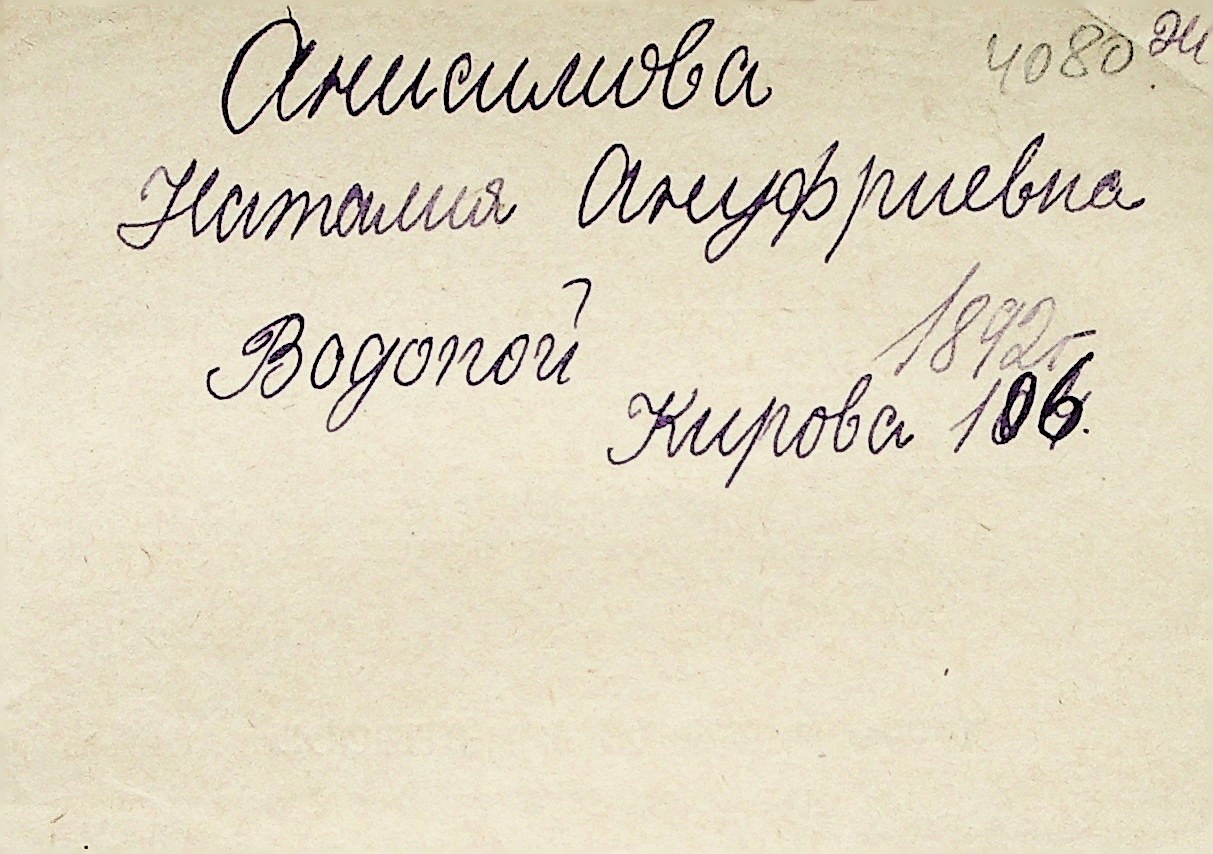 Анисимова 4080 ж
Наталия Ануфриевна
1892г
Водопой
Кирова 106